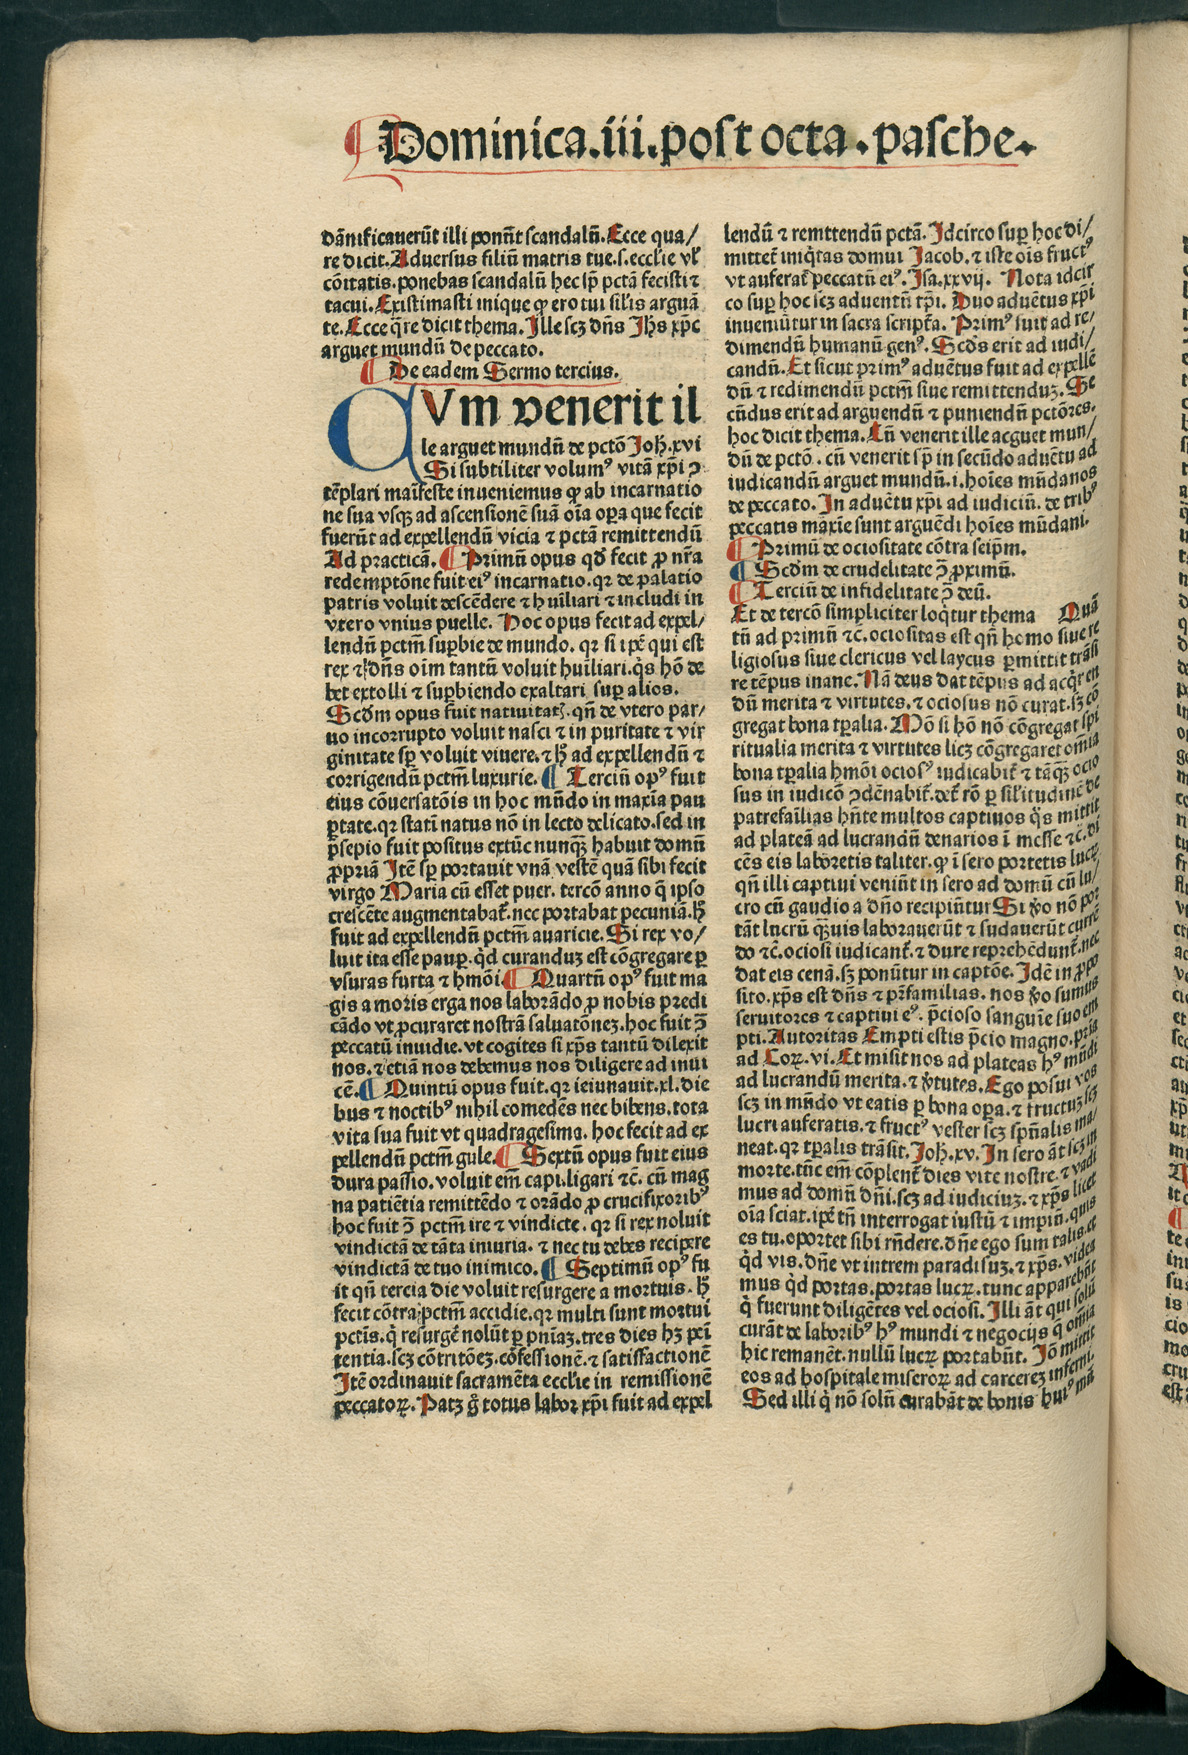 Dominica.iii.post octa.pasche.
dānificauerūt illi ponūt scandalū. Ecce qua/
re dicit. Aduersus filiū matris tue.s.ecclie vl'
cōitatis.ponebas scandalū hec sp̄ pctā fecisti ⁊
tacui. Existimasti inique ꝙ ero tui sil'is arguā
te. Ecce q̄re dicit thema. Ille scꝫ dn̄s Jhs xp̄c
arguet mundū de peccato.
¶ De eadem Sermo tercius.
CVm venerit il
le arguet mundū de pctō Joh̄.xvi
Si subtiliter volumꝰ vitā xp̄i ꝯ
tēplari māifeste inueniemus ꝙ ab incarnatio
ne sua vsqꝫ ad ascensionē suā oīa oꝑa que fecit
fuerūt ad expellendū vicia ⁊ pctā remittendū
Ad practicā. ¶ Primū opus qd̄ fecit ꝓ nr̄a
redemptōne fuit eiꝰ incarnatio.qr de palatio
patris voluit descēdere ⁊ hūiliari ⁊ includi in
vtero vnius puelle. Hoc opus fecit ad expel/
lendū pctm̄ suꝑbie de mundo. qr si ip̄e qui est
rex ⁊ dn̄s oīm tantū voluit hūiliari.q̇s hō de
bet extolli ⁊ suꝑbiendo exaltari suꝑ alios.
Scd̄m opus fuit natiuitatꝭ. qn̄ de vtero par/
uo incorrupto voluit nasci ⁊ in puritate ⁊ vir
ginitate sp̄ voluit viuere. ⁊ h̄ ad expellendū ⁊
corrigendū pctm̄ luxurie. ¶ Terciū opꝰ fuit
eius cōuersatōis in hoc mūdo in maxīa pau
ꝑtate.qr statī natus nō in lecto delicato.sed in
p̄sepio fuit positus extūc nunqꝫ habuit domū
ꝓpriā Itē sp̄ portauit vnā vestē quā sibi fecit
virgo Maria cū esset puer. tercō anno q̄ ipso
crescēte augmentabat̄.nec portabat pecuniā.h̄
fuit ad expellendū pctm̄ auaricie. Si rex vo/
luit ita esse pauꝑ.q̇d curanduꝫ est cōgregare ꝑ
vsuras furta ⁊ hmōi ¶ Quartū opꝰ fuit ma
gis amoris erga nos laborādo ꝓ nobis p̄edi
cādo vt ꝓcuraret nostrā saluatōneꝫ.hoc fuit ꝯ̄
peccatū inuidie.vt cogites si xp̄s tantū dilexit
nos. ⁊ etiā nos debemus nos diligere ad inui
cē. ¶ Quintū opus fuit.qr ieiunauit.xl.die
bus ⁊ noctibꝰ nihil comedēs nec bibens.tota
vita sua fuit vt quadragesima. hoc fecit ad ex
pellendū pctm̄ gule. ¶ Sextū opus fuit eius
dura passio.voluit em̄ capi.ligari ⁊c̄. cū mag
na patiētia remittēdo ⁊ orādo ꝓ crucifixoribꝰ
hoc fuit ꝯ̄ pctm̄ ire ⁊ vindicte. qr si rex noluit
vindictā de tāta iniuria. ⁊ nec tu debes recipere
vindictā de tuo inimico. ¶ Septimū opꝰ fu
it qn̄ tercia die voluit resurgere a mortuis. h̄
fecit cōtra pctm̄ accidie.qr multi sunt mortui
pctīs.q̇ resurgē nolūt ꝑ pn̄iaꝫ.tres dies hꝫ peī
tentia.scꝫ cōtritōeꝫ.cōfessionē.⁊ satisfactionē
Itē ordinauit sacramēta ecclie in remissionē
peccatoꝝ. Patꝫ g̊ totus labor xp̄i fuit ad expel
lendū ⁊ remittendū pctā. Idcirco suꝑ hoc di/
mittet̄ iniq̇tas domui Jacob. ⁊ iste oīs fructꝰ
vt auferat̄ peccatū eiꝰ. Isa.xxvij. Nota idcir
co suꝑ hoc scꝫ aduentū xp̄i. Duo aduētus xp̄i
inueniūtur in sacra script̄a. Primꝰ fuit ad re/
dimendū humanū genꝰ. Scd̄s erit ad iudi/
candū. Et sicut primꝰ aduētus fuit ad expellē
dū ⁊ redimendū pctm̄ siue remittenduꝫ. Se
cūdus erit ad arguendū ⁊ puniendū pctōres.
hoc dicit thema. Cū venerit ille acguet mun/
dū de pctō. cū venerit sp̄ in secūdo aduētu ad
iudicandū arguet mundū.i.hoīes mūdanos
de peccato. In aduētu xp̄i ad iudiciū. de tribꝰ
peccatis maxīe sunt arguēdi hoīes mūdani.
¶ Primū de ociositate cōtra seip̄m.
¶ Scd̄m de crudelitate ꝯ̄ ꝓximū.
¶ Terciū de infidelitate ꝯ̄ deū.
Et de tercō simpliciter loq̇tur thema Quā
tū ad primū ⁊c̄. ociositas est qn̄ homo siue re
ligiosus siue clericus vel laycus ꝑmittit trāsi
re tēpus inane. Nā deus dat tēpus ad acq̇ren
dū merita ⁊ virtutes. ⁊ ociosus nō curat. sꝫ cō
gregat bona tꝑalia. Mō si hō nō cōgregat spi
ritualia merita ⁊ virtutes licꝫ cōgregaret omīa
bona tꝑalia hmōi ociosꝰ iudicabit̄ ⁊ tāqꝫ ocio
sus in iudicō ꝯdēnabit̄.det̄ rō ꝑ sil'itudinē de
patrefāilias hn̄te multos captiuos q̇s mittit
ad plateā ad lucrandū denarios ī messe ⁊c̄.di
cēs eis laboretis taliter.ꝙ ī sero portetis lucꝝ
qn̄ illi captiui veniūt in sero ad domū cū lu/
cro cū gaudio a dn̄o recipiūtur Si v̊o nō por
tāt lucrū qꝫuis laborauerūt ⁊ sudauerūt curre
do ⁊c̄. ociosi iudicant̄. ⁊ dure reprehēdunt̄.nec
dat eis cenā.sꝫ ponūtur in captōe. Idē in ꝓpo
sito. xp̄s est dn̄s ⁊ pr̄familias. nos v̊o sumus
seruitores ⁊ captiui eꝰ. p̄cioso sanguīe suo em
pti. Autoritas Empti estis p̄cio magno. pria
ad Coꝝ. vi. Et misit nos ad plateas hꝰ mūdi
ad lucrandū merita. ⁊ v̊tutes. Ego posui vos
scꝫ in mūdo vt eatis ꝑ bona oꝑa. ⁊ fructuꝫ scꝫ
lucri auferatis. ⁊ fructꝰ vester scꝫ sp̄ūalis ma/
neat. qr tꝑalis trāsit. Joh̄. xv. In sero āt scꝫ in
morte. tūc em̄ cōplent̄ dies vite nostre. ⁊ vadi
mus ad domū dn̄i.scꝫ ad iudiciuꝫ. ⁊ xp̄s licet
oīa sciat.ip̄e tn̄ interrogat iustū ⁊ impiū.quis
es tu.oportet sibi rn̄dere.dn̄e ego sum talis.et
q̇d vis.dn̄e vt intrem paradisuꝫ. ⁊ xp̄s.videa
mus q̇d portas.portas lucꝝ. tunc apparebūt
q̇ fuerunt diligētes vel ociosi. Illi āt qui solū
curāt de laboribꝰ hꝰ mundi ⁊ negocijs q̇ omīa
hic remanēt. nullū lucꝝ portabūt. Jō mittit
eos ad hospitale miseroꝝ ad carcereꝫ inferni.
Sed illi q̇ nō solū curabāt de bonis huiꝰ mū